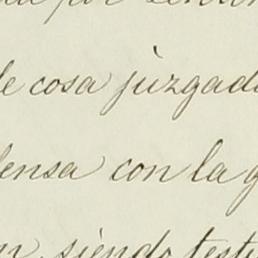 por
de cosa juzgada
ensa con la g
n, siendo testi